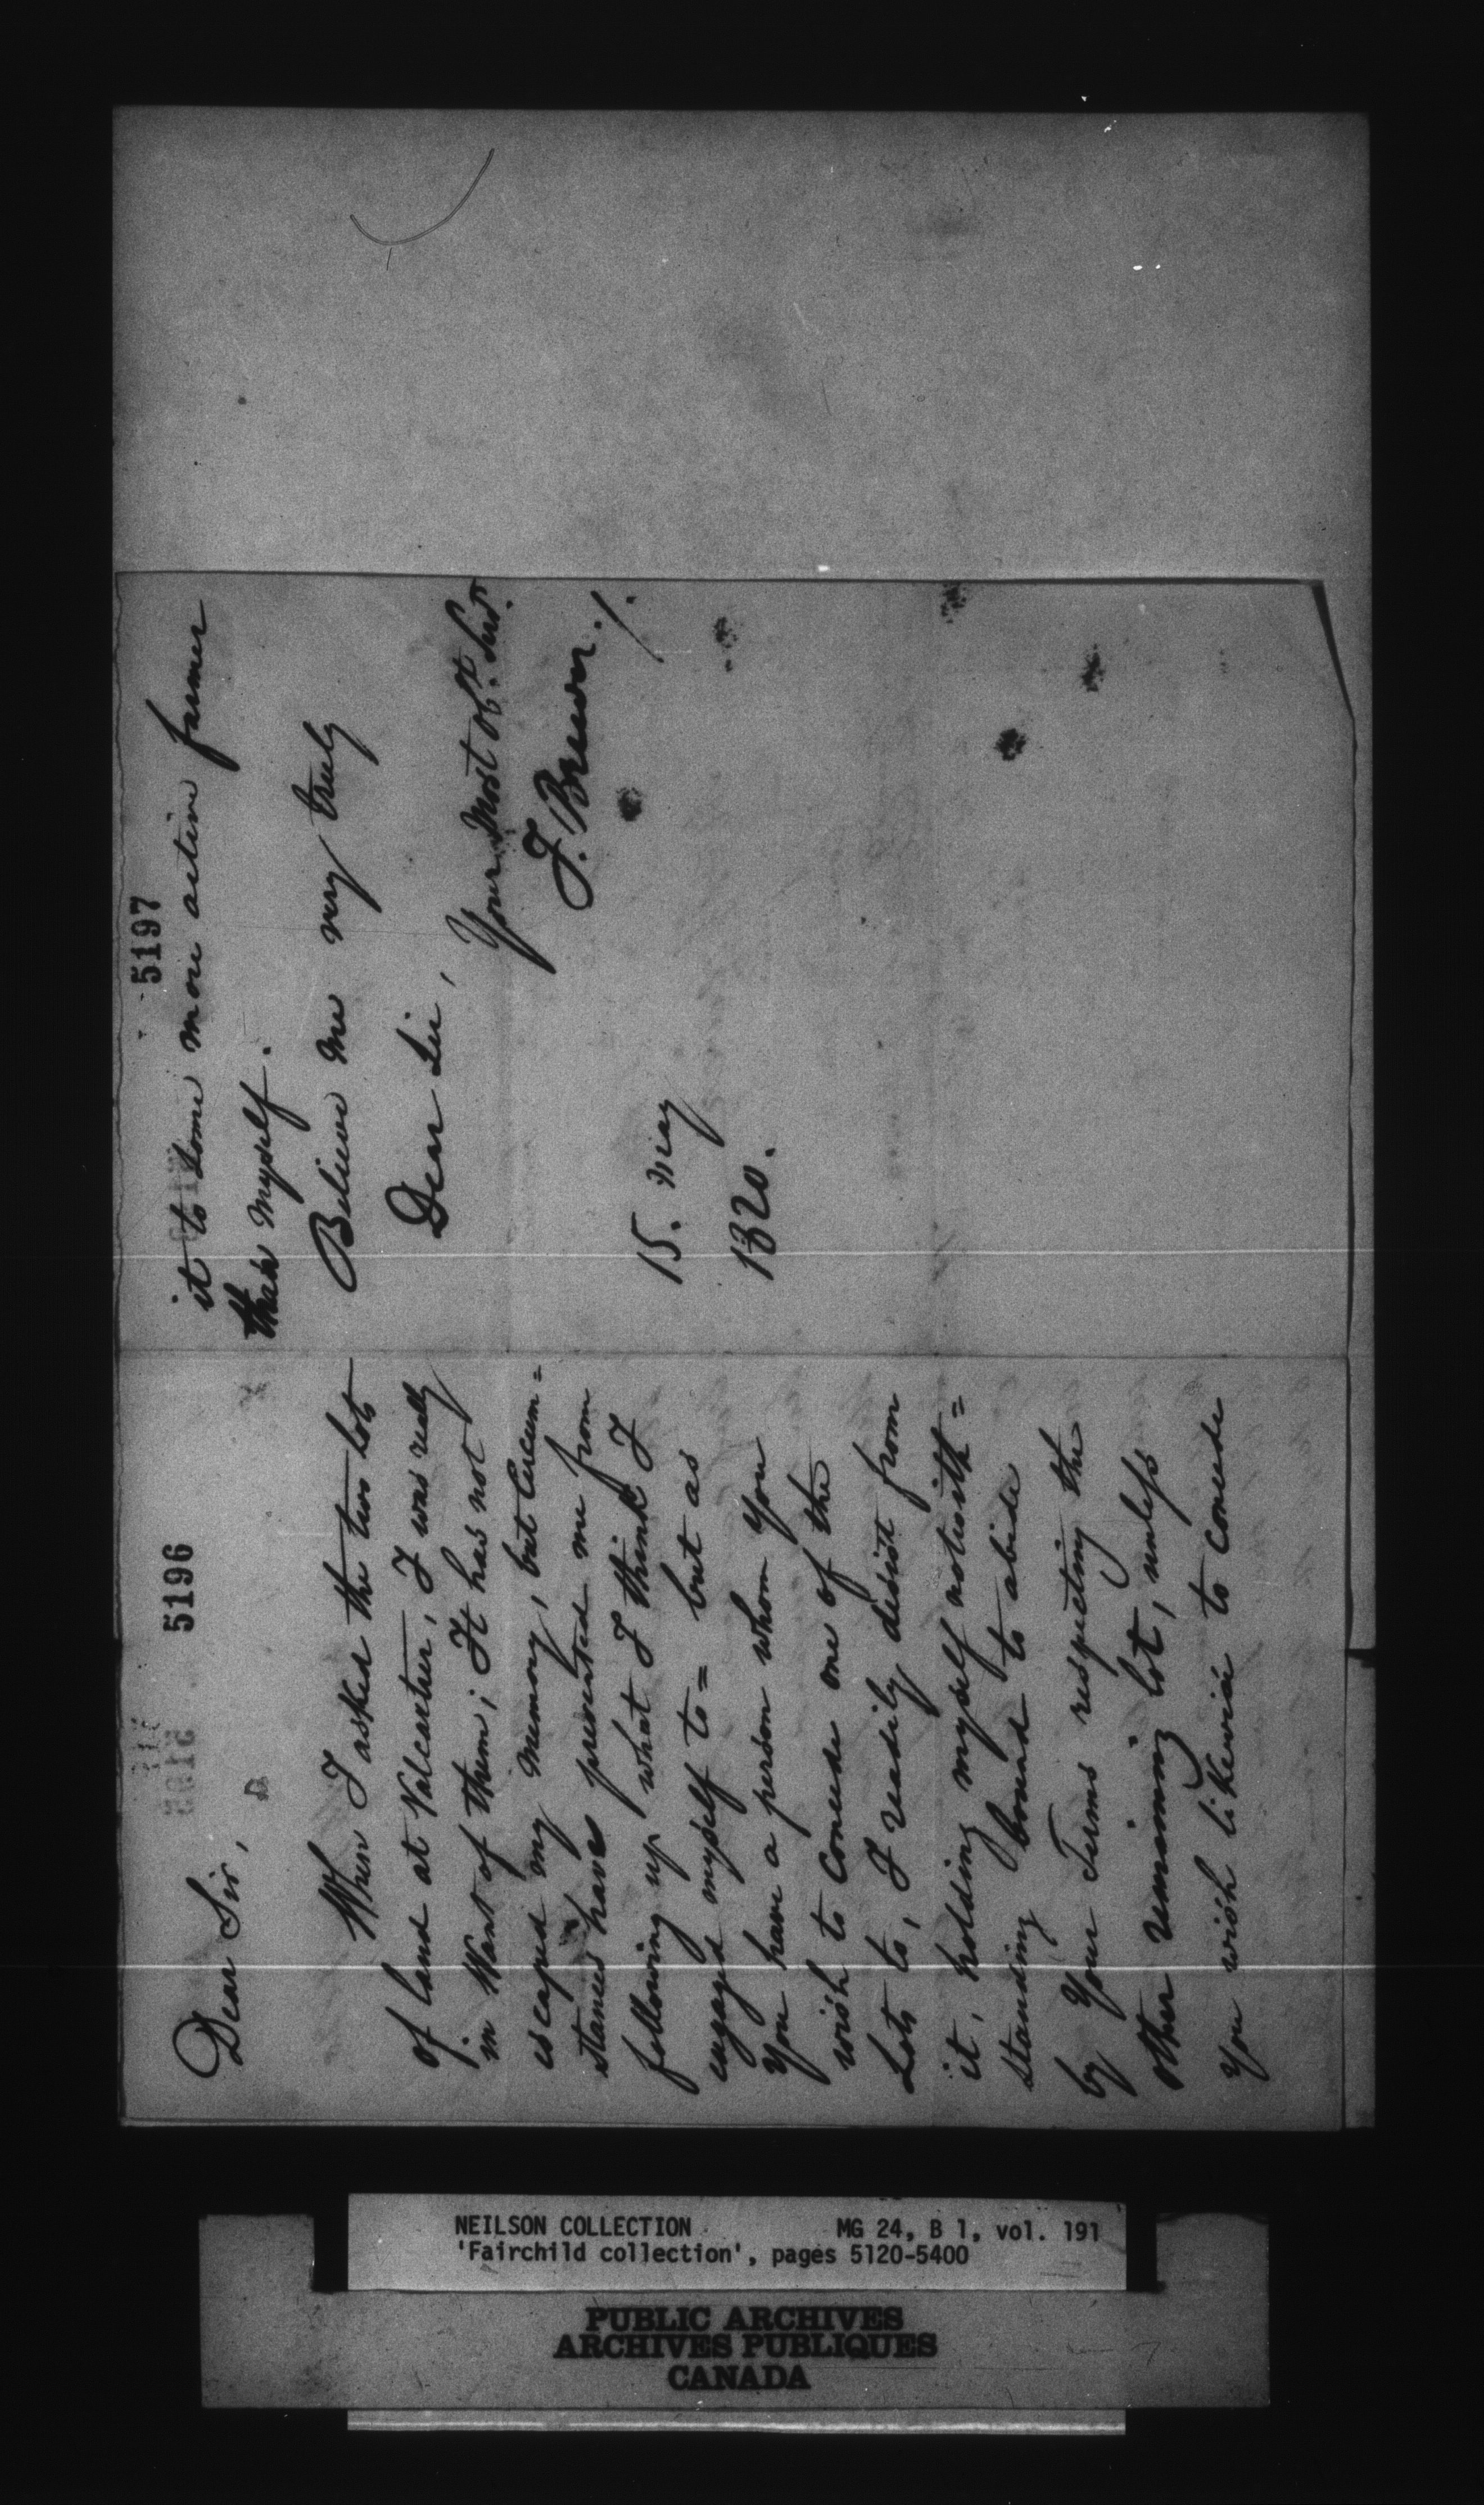 5196
Dear Sir,
When I asked the two Lots
of land at Valcartier, I was really
in Want of them; It has not
escaped my memory, but Circum=
stances have prevented me from
following up what I think I
engaged myself to= but as
You have a person whom You
wish to Concede one of the
Lots to, I readily desist from
it, holding myself notwith=
standing bound to abide
by Your Terms respecting the
other remaining lot, unless
you wish likewise to concede
5197
it to some more active farmer
than myself.
Believe me very truly
Dear Sir,
Your Most Obt. Servt.
J.
15. May
1820.
NEILSON COLLECTION MG 24, B 1, vol. 191
'Fairchild collection', pages 5120-5400
PUBLIC ARCHIVES
ARCHIVES PUBLIQUES
CANADA